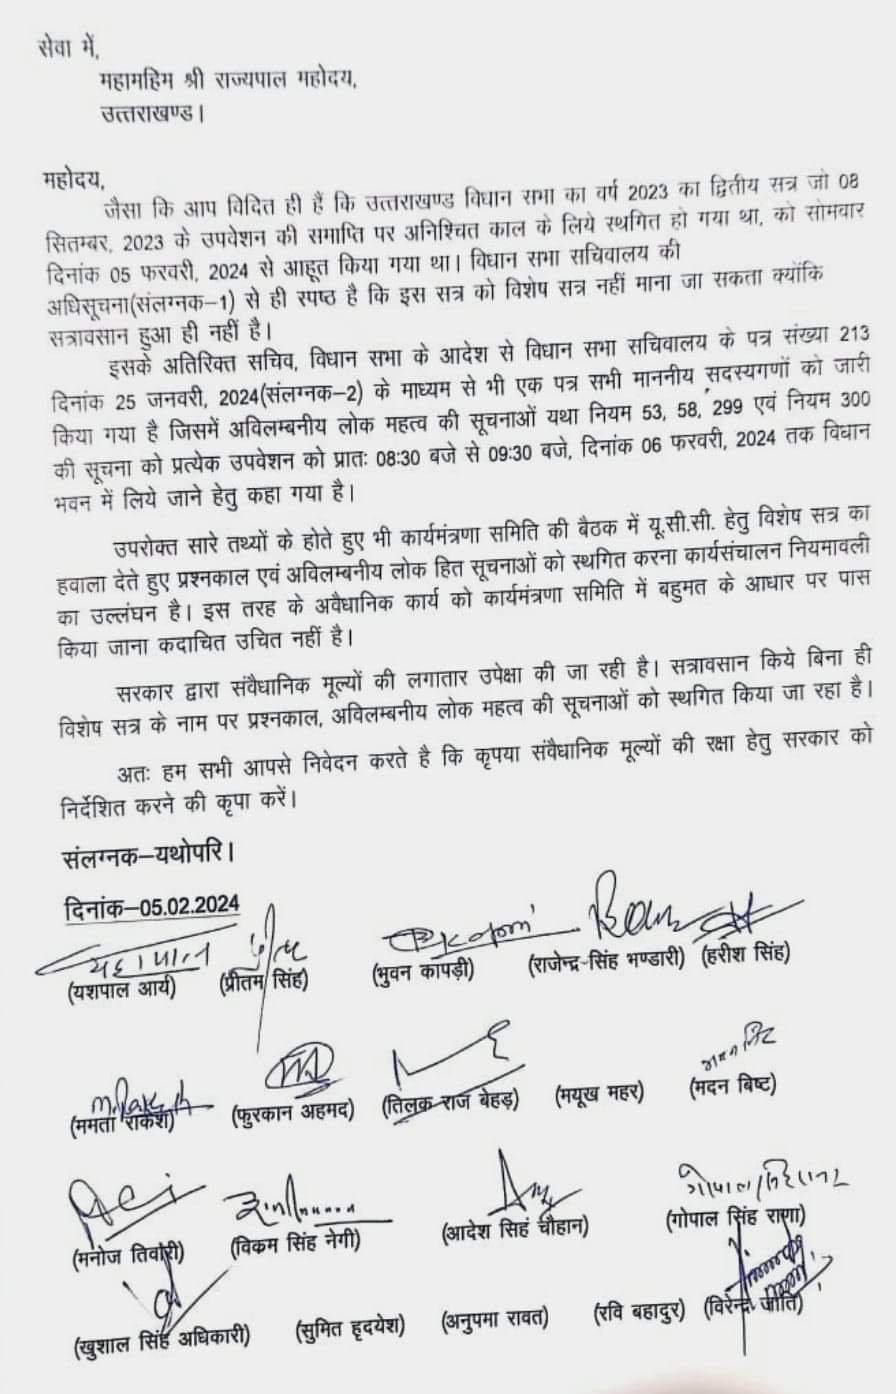 सेवा में,
महामहिम श्री राज्यपाल महोदय,
उत्तराखण्ड।
महोदय,
जैसा कि आप विदित ही हैं कि उत्तराखण्ड विधान सभा का वर्ष 2023 का द्वितीय सत्र जो 08
सितम्बर, 2023 के उपवेशन की समाप्ति पर अनिश्चित काल के लिये स्थगित हो गया था, को सोमवार
दिनांक 05 फरवरी, 2024 से आहूत किया गया था। विधान सभा सचिवालय की
अधिसूचना(संलग्नक–1) से ही स्पष्ठ है कि इस सत्र को विशेष सत्र नहीं माना जा सकता क्योंकि
सत्रावसान हुआ ही नहीं है।
इसके अतिरिक्त सचिव, विधान सभा के आदेश से विधान सभा सचिवालय के पत्र संख्या 213
दिनांक 25 जनवरी, 2024(संलग्नक–2) के माध्यम से भी एक पत्र सभी माननीय सदस्यगणों को जारी
किया गया है जिसमें अविलम्बनीय लोक महत्व की सूचनाओं यथा नियम 53, 58, 299 एवं नियम 300
की सूचना को प्रत्येक उपवेशन को प्रातः 08:30 बजे से 09:30 बजे, दिनांक 06 फरवरी, 2024 तक विधान
भवन में लिये जाने हेतु कहा गया है।
उपरोक्त सारे तथ्यों के होते हुए भी कार्यमंत्रणा समिति की बैठक में यू.सी.सी. हेतु विशेष सत्र का
हवाला देते हुए प्रश्नकाल एवं अविलम्बनीय लोक हित सूचनाओं को स्थगित करना कार्यसंचालन नियमावली
का उल्लंघन है। इस तरह के अवैधानिक कार्य को कार्यमंत्रणा समिति में बहुमत के आधार पर पास
किया जाना कदाचित उचित नहीं है।
सरकार द्वारा संवैधानिक मूल्यों की लगातार उपेक्षा की जा रही है। सत्रावसान किये बिना ही
विशेष सत्र के नाम पर प्रश्नकाल, अविलम्बनीय लोक महत्व की सूचनाओं को स्थगित किया जा रहा है।
अतः हम सभी आपसे निवेदन करते है कि कृपया संवैधानिक मूल्यों की रक्षा हेतु सरकार को
निर्देशित करने की कृपा करें।
संलग्नक–यथोपरि।
दिनांक–05.02.2024
यशपाल
(यशपाल आर्य) (प्रीतम सिंह) (भुवन कापड़ी) (राजेन्द्र सिंह भण्डारी) (हरीश सिंह)
मदन बिष्ट
(ममता राकेश) (फुरकान अहमद) (तिलक राज बेहड़) (मयूख महर) (मदन बिष्ट)
(मनोज तिवारी) (विक्रम सिंह नेगी) (आदेश सिहं चौहान) (गोपाल सिंह राणा)
(खुशाल सिंह अधिकारी) (सुमित हृदयेश) (अनुपमा रावत) (रवि बहादुर) (विरेन्द्र जाति)